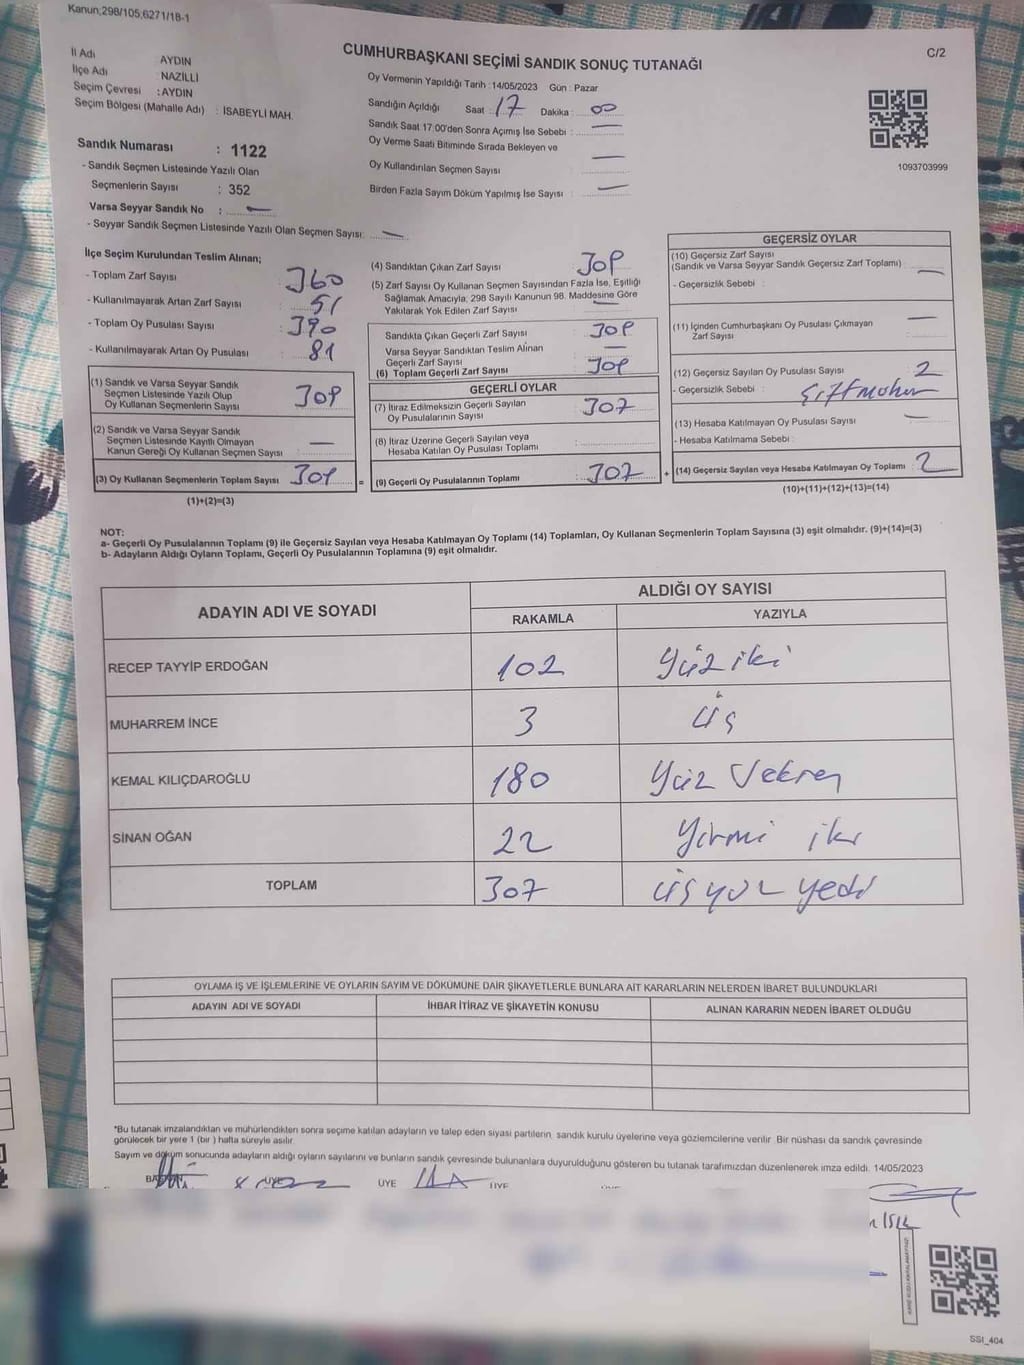 Kanun;298/105,6271/18-1
C/2
CUMHURBAŞKANI SEÇİMİ SANDIK SONUÇ TUTANAĞI
İl Adı AYDIN
İlçe Adı : NAZİLLİ
Seçim Çevresi : AYDIN
Seçim Bölgesi (Mahalle Adı) : İSABEYLİ MAH.
Oy Vermenin Yapıldığı Tarih :14/05/2023 Gün : Pazar
Sandığın Açıldığı Saat : 17 Dakika : 00
Sandık Saat 17.00'den Sonra Açımış İse Sebebi : —
Oy Verme Saati Bitiminde Sırada Bekleyen ve
Oy Kullandırılan Seçmen Sayısı —
Birden Fazla Sayım Döküm Yapılmış İse Sayısı : —
1093703999
Sandık Numarası : 1122
- Sandık Seçmen Listesinde Yazılı Olan
Seçmenlerin Sayısı : 352
Varsa Seyyar Sandık No : —
- Seyyar Sandık Seçmen Listesinde Yazılı Olan Seçmen Sayısı: —
İlçe Seçim Kurulundan Teslim Alınan;
- Toplam Zarf Sayısı 360
- Kullanılmayarak Artan Zarf Sayısı : 51
- Toplam Oy Pusulası Sayısı : 390
- Kullanılmayarak Artan Oy Pusulası : 81
(1) Sandık ve Varsa Seyyar Sandık
Seçmen Listesinde Yazılı Olup
Oy Kullanan Seçmenlerin Sayısı 309
(2) Sandık ve Varsa Seyyar Sandık
Seçmen Listesinde Kayıtlı Olmayan
Kanun Gereği Oy Kullanan Seçmen Sayısı —
(3) Oy Kullanan Seçmenlerin Toplam Sayısı 309
(1)+(2)=(3)
(4) Sandıktan Çıkan Zarf Sayısı 309
(5) Zarf Sayısı Oy Kullanan Seçmen Sayısından Fazla İse, Eşitliği
Sağlamak Amacıyla, 298 Sayılı Kanunun 98. Maddesine Göre
Yakılarak Yok Edilen Zarf Sayısı —
Sandıkta Çıkan Geçerli Zarf Sayısı 309
Varsa Seyyar Sandıktan Teslim Alınan
Geçerli Zarf Sayısı —
(6) Toplam Geçerli Zarf Sayısı 309
GEÇERLİ OYLAR
(7) İtiraz Edilmeksizin Geçerli Sayılan
Oy Pusulalarının Sayısı 307
(8) İtiraz Üzerine Geçerli Sayılan veya
Hesaba Katılan Oy Pusulası Toplamı
= (9) Geçerli Oy Pusulalarının Toplamı 307
GEÇERSİZ OYLAR
(10) Geçersiz Zarf Sayısı
(Sandık ve Varsa Seyyar Sandık Geçersiz Zarf Toplamı) : —
- Geçersizlik Sebebi :
(11) İçinden Cumhurbaşkanı Oy Pusulası Çıkmayan
Zarf Sayısı : —
(12) Geçersiz Sayılan Oy Pusulası Sayısı : 2
- Geçersizlik Sebebi : Çift mühür
(13) Hesaba Katılmayan Oy Pusulası Sayısı : —
- Hesaba Katılmama Sebebi :
+ (14) Geçersiz Sayılan veya Hesaba Katılmayan Oy Toplamı : 2
(10)+(11)+(12)+(13)=(14)
NOT:
a- Geçerli Oy Pusulalarının Toplamı (9) ile Geçersiz Sayılan veya Hesaba Katılmayan Oy Toplamı (14) Toplamları, Oy Kullanan Seçmenlerin Toplam Sayısına (3) eşit olmalıdır. (9)+(14)=(3)
b- Adayların Aldığı Oyların Toplamı, Geçerli Oy Pusulalarının Toplamına (9) eşit olmalıdır.
ADAYIN ADI VE SOYADI ALDIĞI OY SAYISI
RAKAMLA YAZIYLA
RECEP TAYYİP ERDOĞAN 102 Yüz iki
MUHARREM İNCE 3 üç
KEMAL KILIÇDAROĞLU 180 Yüz Seksen
SİNAN OĞAN 22 Yirmi iki
TOPLAM 307 üçyüz yedi
OYLAMA İŞ VE İŞLEMLERİNE VE OYLARIN SAYIM VE DÖKÜMÜNE DAİR ŞİKAYETLERLE BUNLARA AİT KARARLARIN NELERDEN İBARET BULUNDUKLARI
ADAYIN ADI VE SOYADI İHBAR İTİRAZ VE ŞİKAYETİN KONUSU ALINAN KARARIN NEDEN İBARET OLDUĞU
*Bu tutanak imzalandıktan ve mühürlendikten sonra seçime katılan adayların ve talep eden siyasi partilerin, sandık kurulu üyelerine veya gözlemcilerine verilir. Bir nüshası da sandık çevresinde
görülecek bir yere 1 (bir ) hafta süreyle asılır.
Sayım ve döküm sonucunda adayların aldığı oyların sayılarını ve bunların sandık çevresinde bulunanlara duyurulduğunu gösteren bu tutanak tarafımızdan düzenlenerek imza edildi. 14/05/2023
BAŞKAN ÜYE ÜYE ÜYE
SSI_404